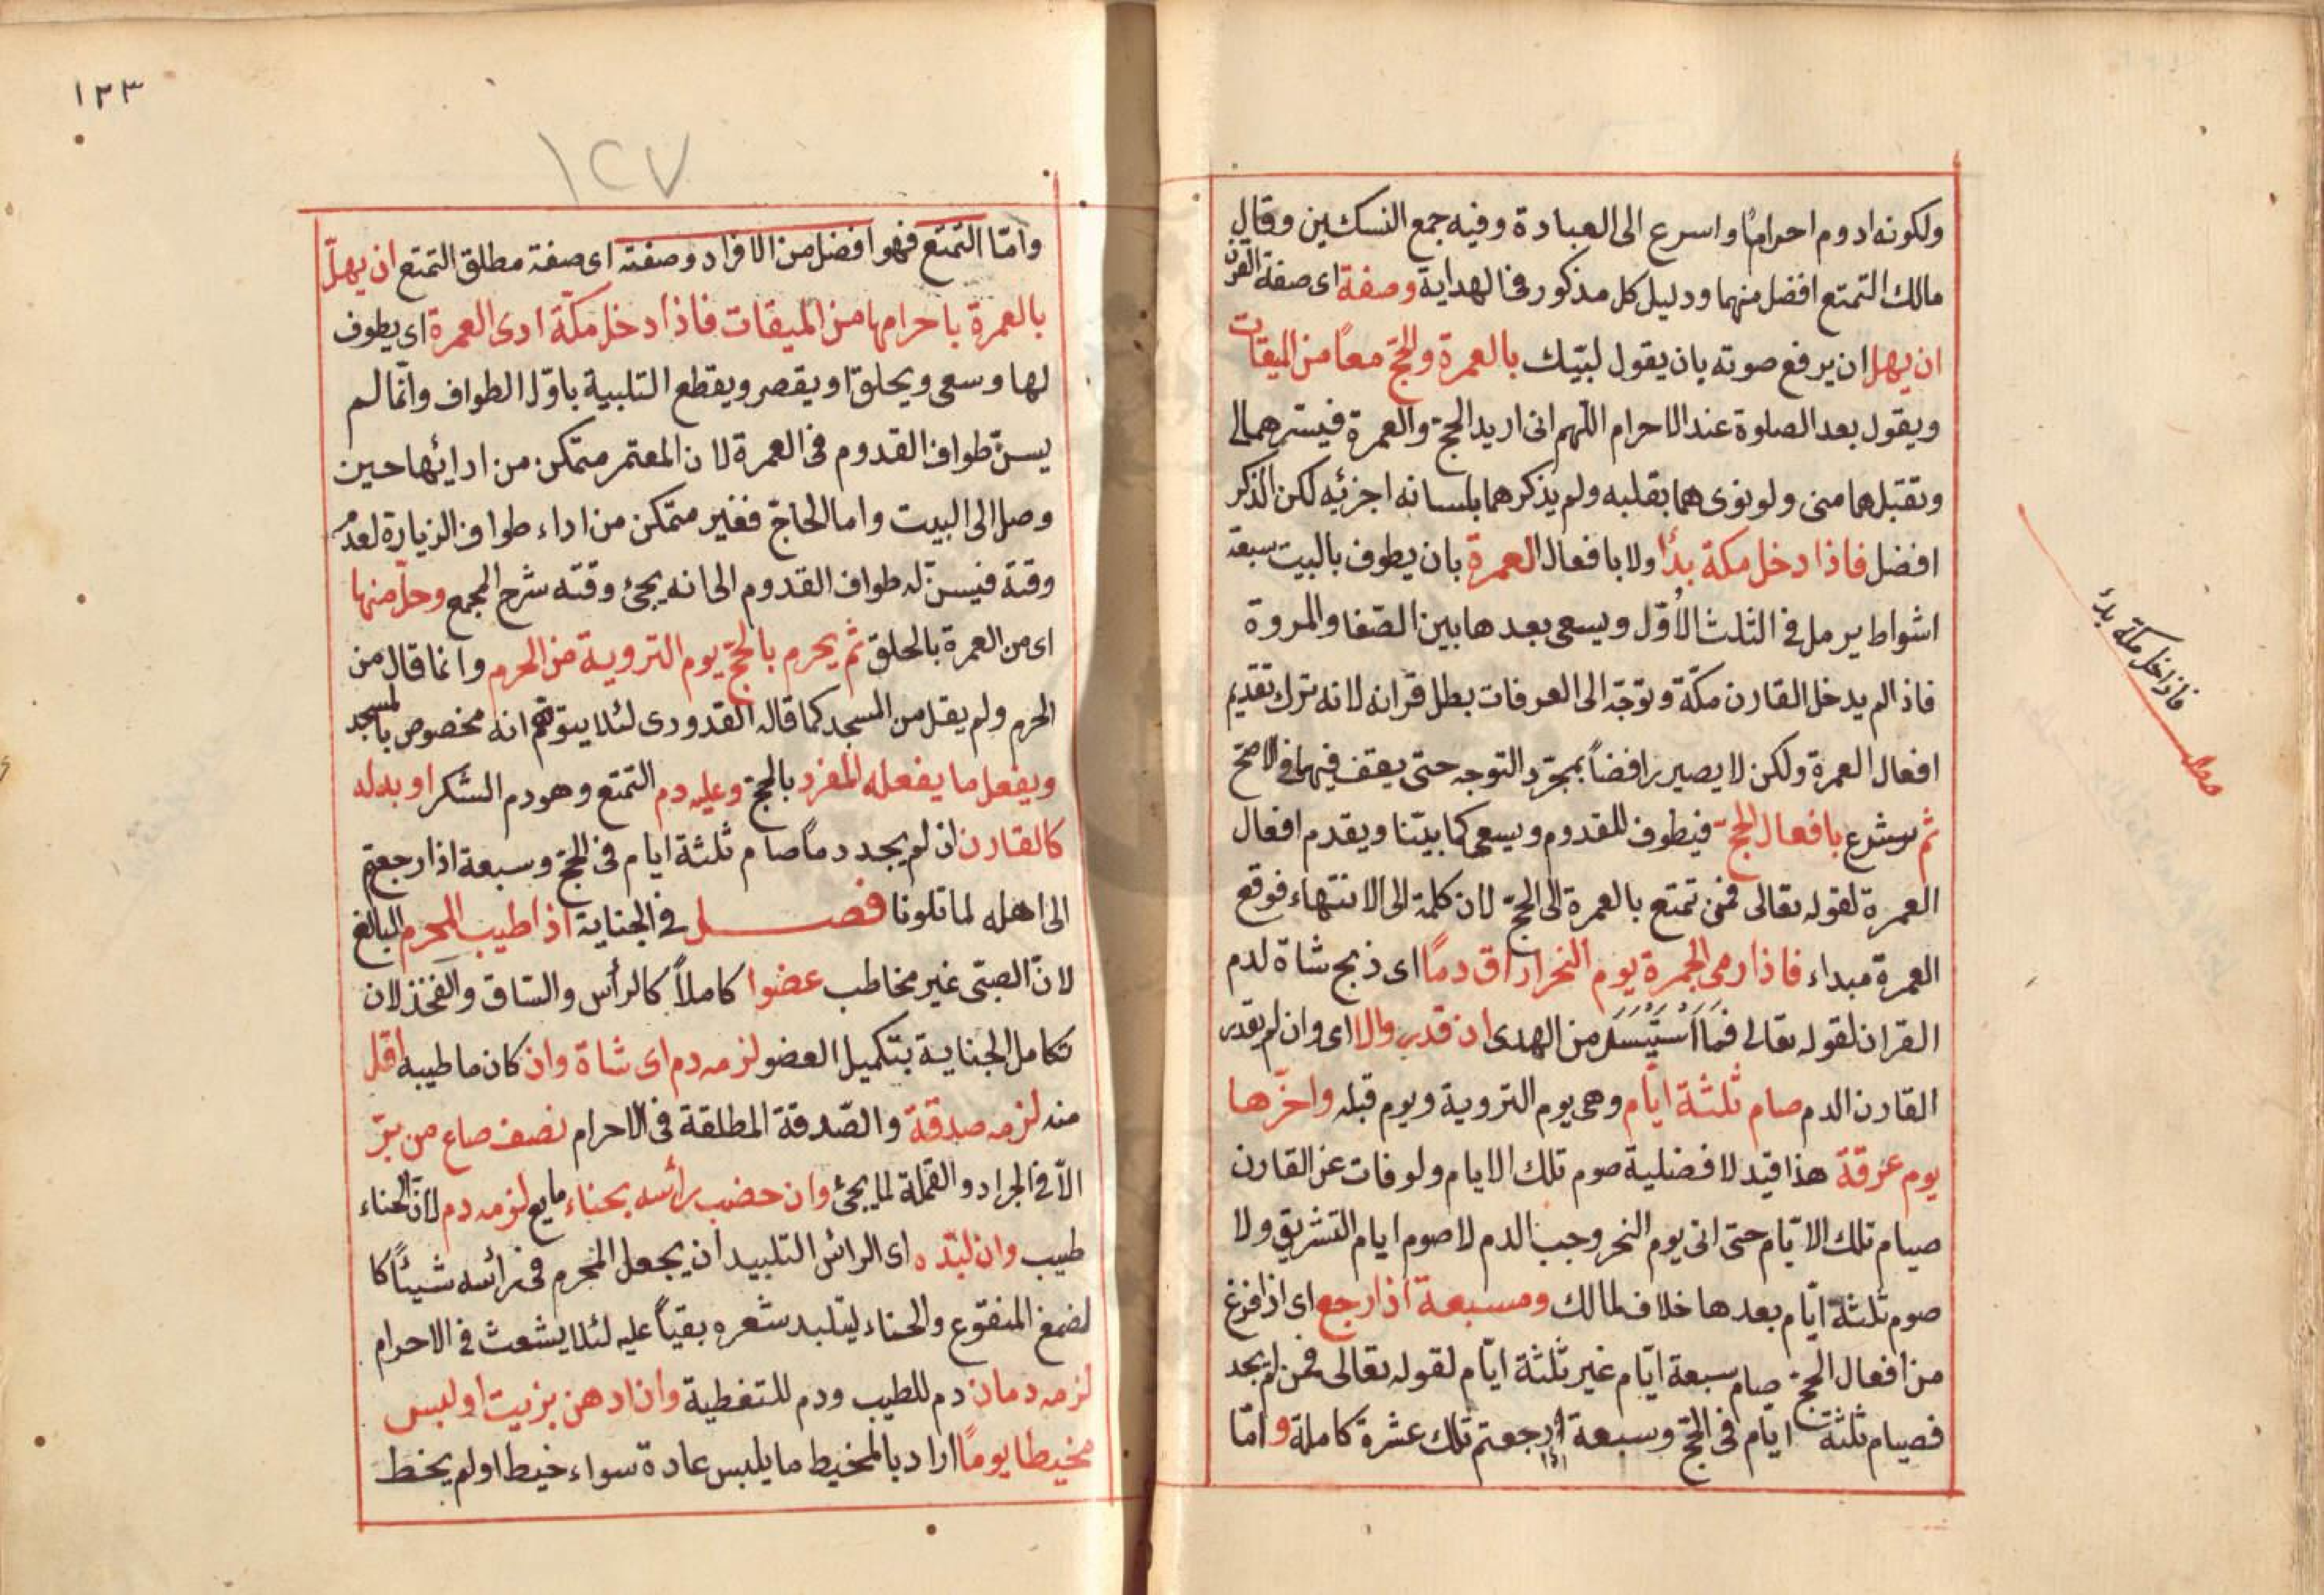 ولكونه ادوم احراما واسرع الى العبادة وفيه جمع النسكين وقال
مالك التمتع افضل منهما ودليل كل مذكور فى الهداية وصفة اى صفة القرن
ان يهل ان يرفع صوته بان يقول لبيك بالعمرة والحج معا من الميقات
ويقول بعد الصلوة عند الاحرام اللهم انى اريد الحج والعمرة فيسرهما لى
وتقبلهما منى ولو نوى هما بقلبه ولم يذكرهما بلسانه اجزئه لكن الذكر
افضل فاذا دخل مكة بدأ اولا بافعال العمرة بان يطوف بالبيت سبعة
اشواط يرمل فى الثلث الأول ويسعى بعدها بين الصفا والمروة
فاذا لم يدخل القارن مكة وتوجه الى العرفات بطل قرانه لانه ترك تقديم
افعال العمرة ولكن لا يصير رافضاً بمجرد التوجه حتى يقف فيهما فى الاصح
ثم يشرع بافعال الحج فيطوف للقدوم ويسعى كما بيّنا ويقدم افعال
العمرة لقوله تعالى فمن تمتع بالعمرة الى الحج لان كلمة الى الانتهاء فوقع
العمرة مبداء فاذا رمى الجمرة يوم النحر اراق دماً اى ذبح شاة لدم
القران لقوله تعالى فما استيسر من الهدى ان قدر والا اى وان لم يقدر
القارن الدم صام ثلثة ايّام وهى يوم التروية ويوم قبله واخرها
يوم عرفة هذا قيد لافضلية صوم تلك الايام ولو فات عن القارن
صيام تلك الايّام حتى اتى يوم النحر وجب الدم لا صوم ايام التشريق ولا
صوم ثلثة ايّام بعدها خلاف لمالك وسبعة اذا رجع اى اذا فرغ
من افعال الحج صام سبعة ايّام غير ثلثة ايّام لقوله تعالى فمن لم يجد
فصيام ثلثة ايام فى الحج وسبعة اذا رجعتم تلك عشرة كاملة وامّا
فاذا دخل مكة بدء
مطلب
١٣٣
١٢٧
وامّا التمتع فهو افضل من الافراد وصفته اى صفة مطلق التمتع ان يهلّ
بالعمرة باحرامها من الميقات فاذا دخل مكّة ادى العمرة اى يطوف
لها وسعى ويحلق او يقصر ويقطع التلبية باوّل الطواف وانّما لم
يسنّ طواف القدوم فى العمرة لان المعتمر متمكن من ادائها حين
وصل الى البيت واما الحاج فغير متمكن من اداء طواف الزيارة لعدم
وقته فيسنّ له طواف القدوم الى انه يجئ وقته شرح المجمع وحلّ منها
اى من العمرة بالحلق ثم يحرم بالحج يوم التروية من الحرم وانما قال من
الحرم ولم يقل من المسجد كما قاله القدورى لئلا يتوهم انه مخصوص بالمسجد
ويفعل ما يفعله المفرد بالحج وعليه دم التمتع وهو دم الشكر او بدله
كالقارن ان لم يجد دماً صام ثلثة ايام فى الحج وسبعة اذا رجعتم
الى اهله لما تلونا فصل فى الجناية اذا طيب المحرم البالغ
لانّ الصبىّ غير مخاطب عضوا كاملاً كالرأس والساق والفخذ لان
تكامل الجناية بتكميل العضو لزمه دم اى شاة وان كان ما طيبه اقل
منه لزمه صدقة والصّدقة المطلقة فى الاحرام نصف صاع من برّ
الاّ فى الجراد والقملة لما يجئ وان حضب رأسه بحناء مايع لزمه دم لانّ الحناء
طيب وان لبّده اى الرأس التلبيد ان يجعل المحرم فى رأسه شيئاً كا
لصمغ المنقوع والحناء ليتلبد شعره بقياً عليه لئلا يشعث فى الاحرام
لزمه دمان دم للطيب ودم للتغطية وان ادهن بزيت او لبس
مخيطا يوماً اراد بالمخيط ما يلبس عادة سواء خيط او لم يخط